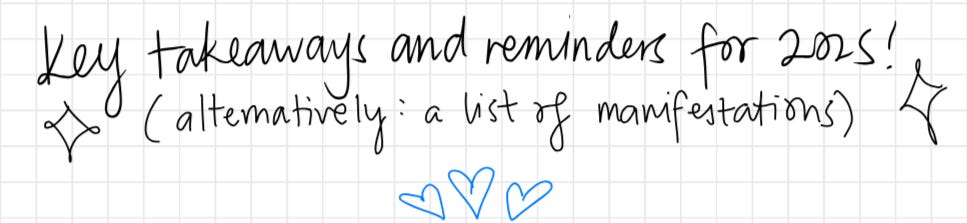 Key takeaways and reminders for 2025!
(alternatively: a list of manifestations)